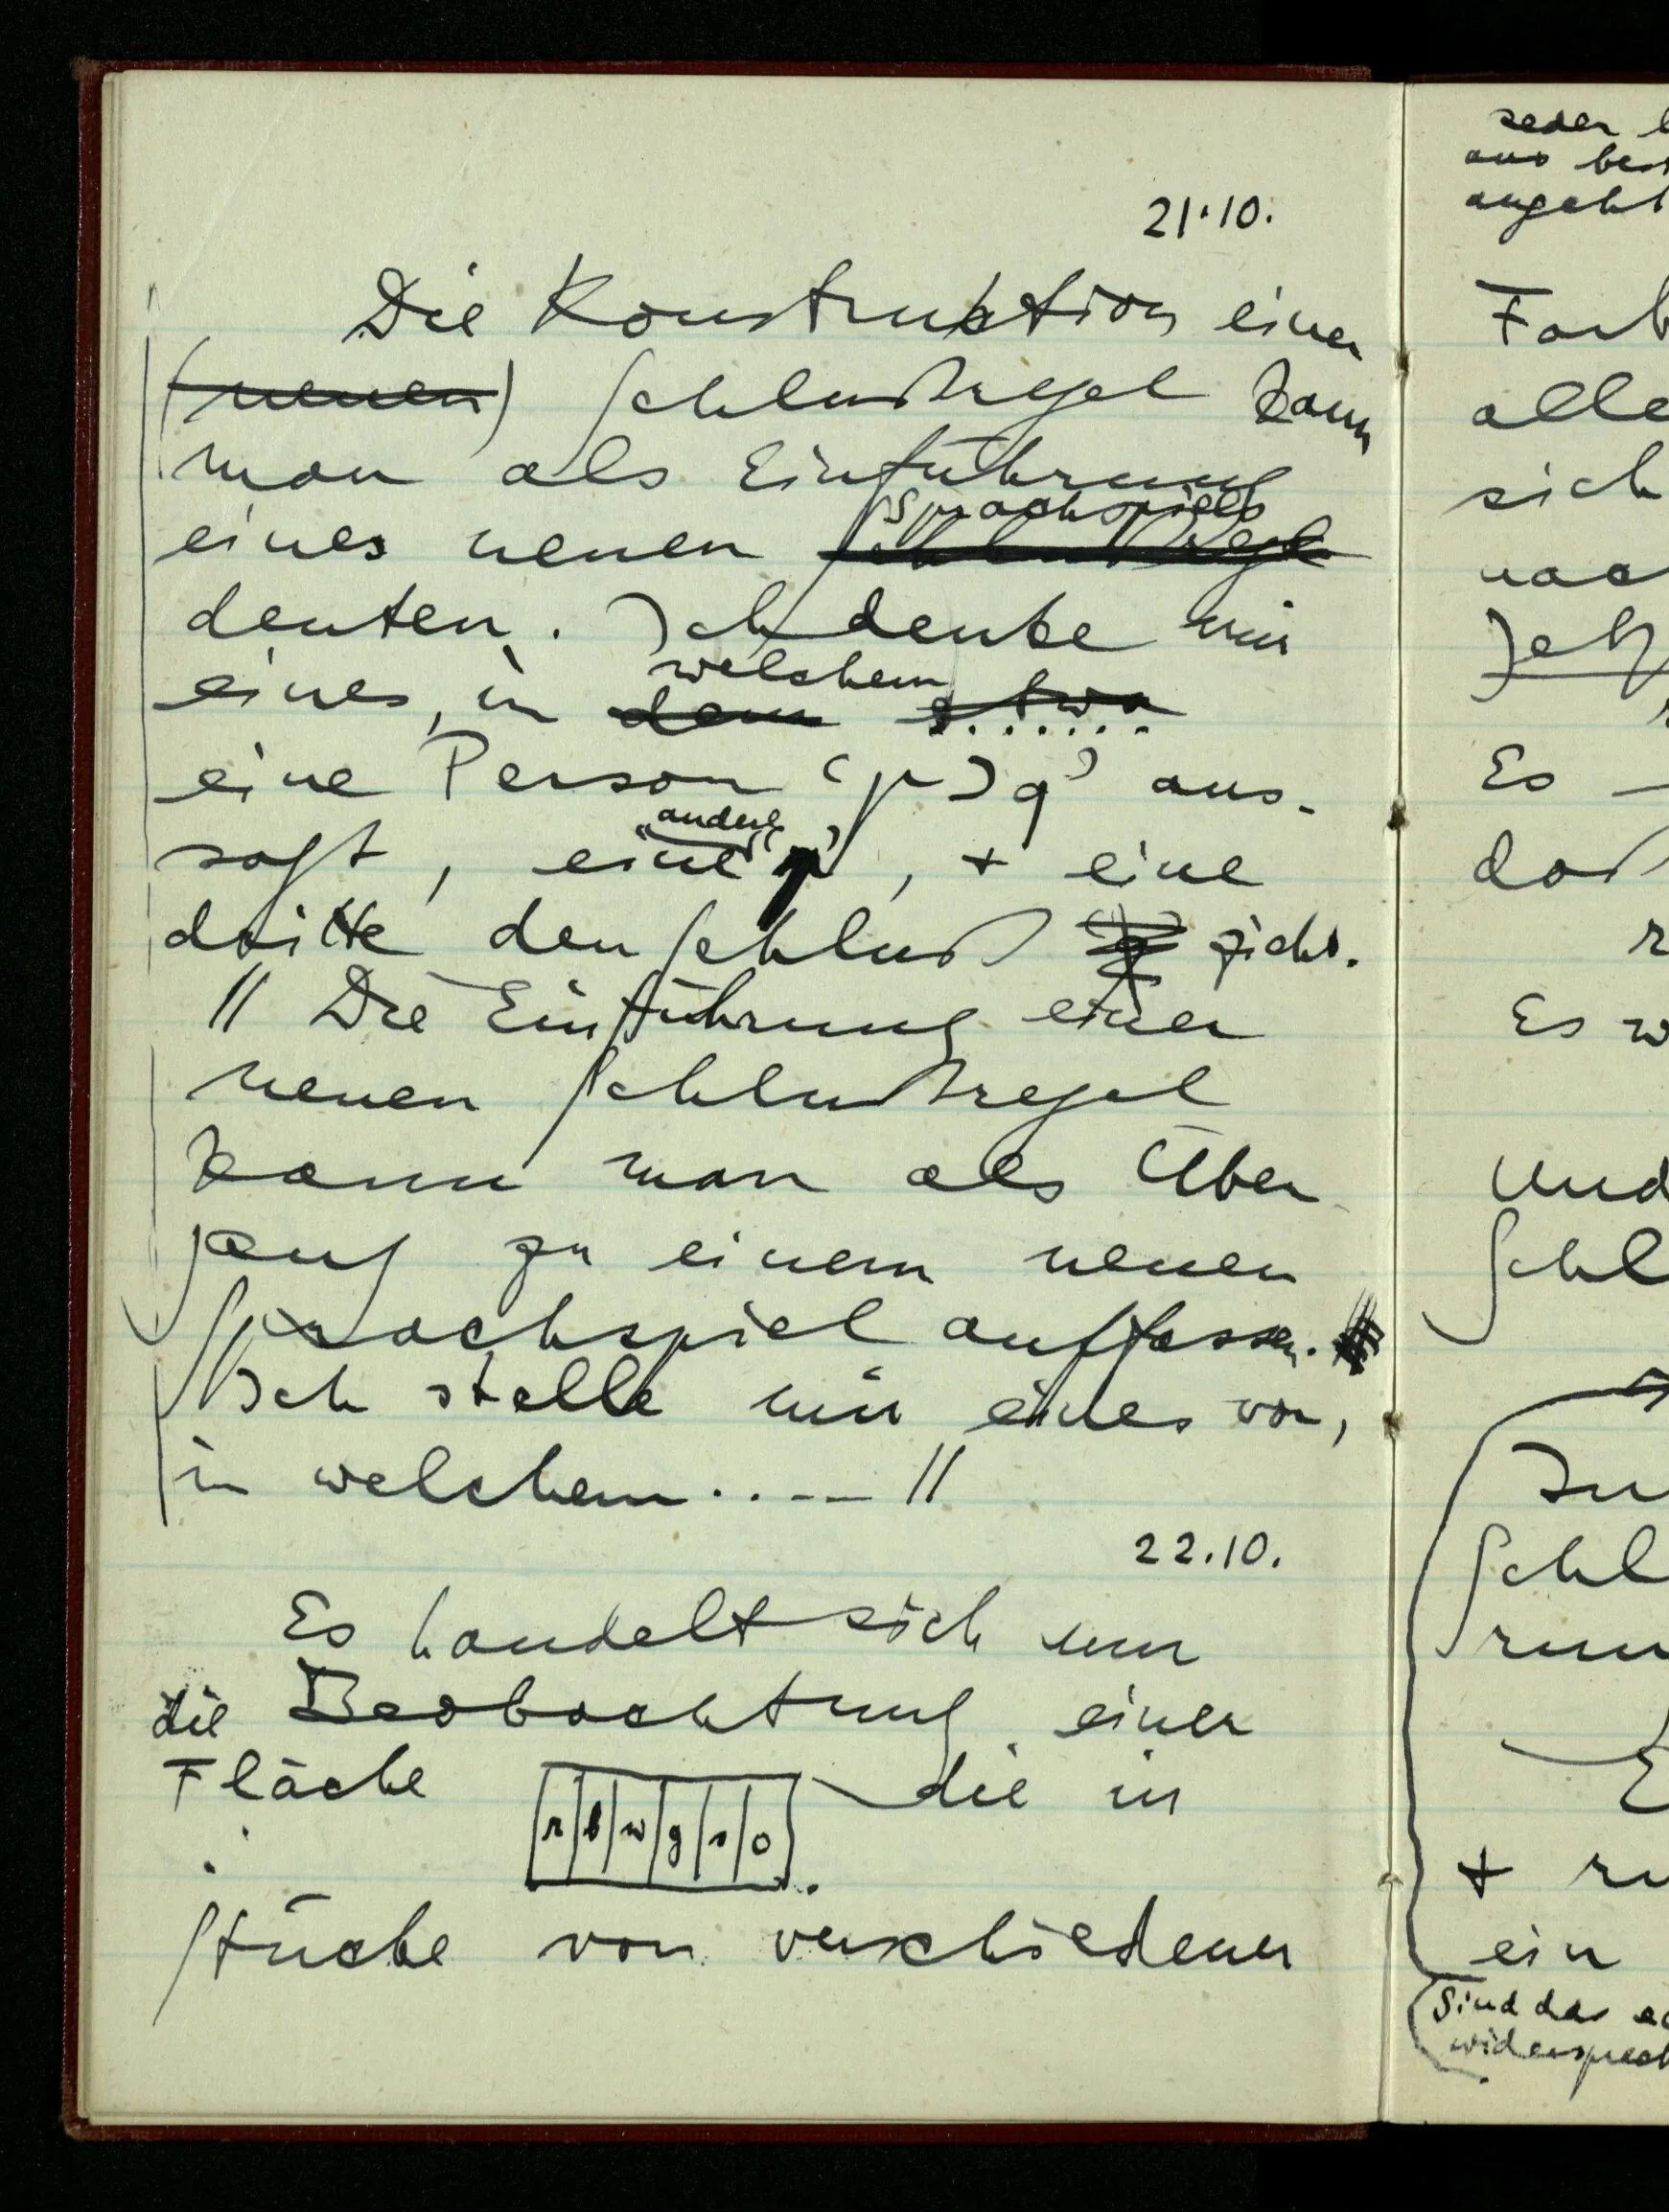 21.10.
Die Konstruktion einer
(neuen) Schlußregel kann
man als Einführung
Sprachspiels
eines neuen Schlußregel
deuten. Ich denke mir
welchem
eines, in dem etwa
eine Person ‘p⊃q’ aus-
andere
sagt, eine ‘p’, + eine
dritte den Schluß zieht.
// Die Einführung einer
neuen Schlußregel
kann man als Über
gang zu einem neuen
Sprachspiel auffassen.
Ich stelle mir eines vor,
in welchem ..... //
22.10.
Es handelt sich um
die Beobachtung einer
Fläche die in
r b w g s o
Stücke von verschiedener
seder
aus
Farb
alle
sich
Jetz
Es
daß
r
Es w
Und
Schl
Schl
run
+ ru
ein
Sind das
widersprech